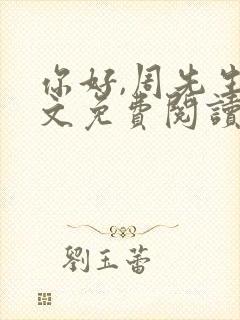 你好,周先生
文免費閱讀
劉玉蕾